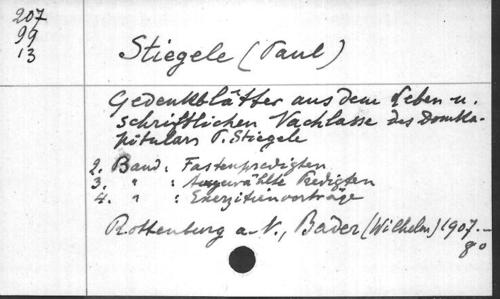 207
99
13
Stiegele (Paul)
Gedenkblätter aus dem Leben u.
schriftlichen Nachlasse des Domka-
pitulars P. Stiegele
2. Band: Fastenpredigten
3. " : Ausgewählte Predigten
4. " : Exerzitienvorträge
Rottenburg a. N., Bader (Wilhelm) 1907.-
8°